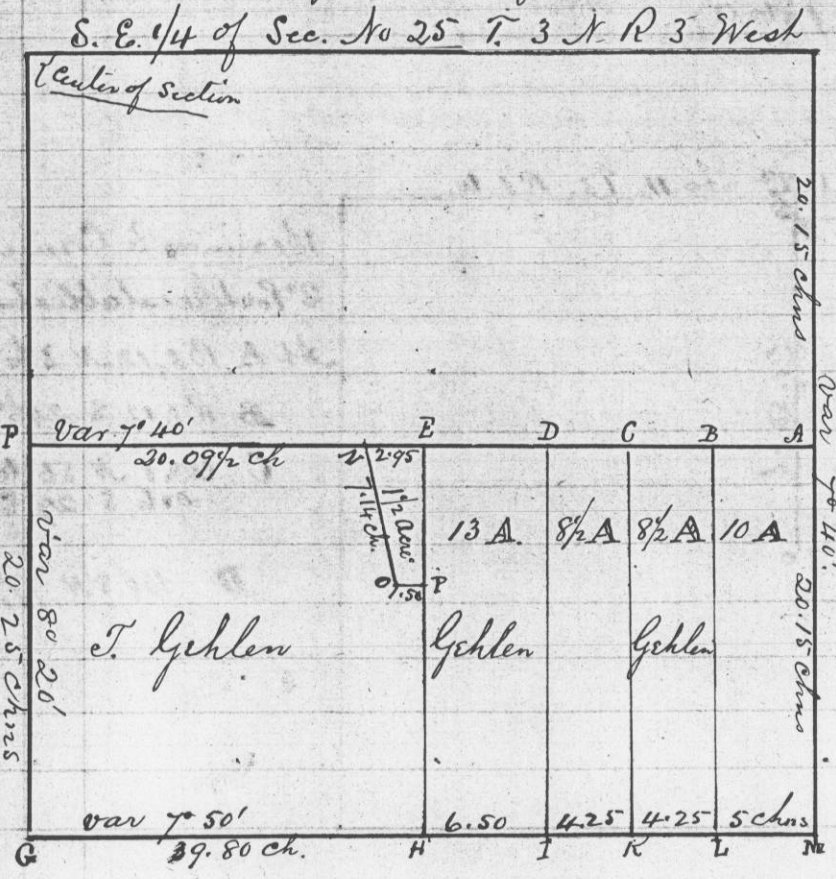 S. E. 1/4 of Sec. No 25 T. 3 N. R 3 West
Center of Section
20.15 chns
Var 7° 40'
P
Var. 7° 40'
E
D
C
B
A
20.09 1/2 ch
2.95
7.14 ch.
1 1/2 acre
O
1.50
P
13 A.
8 1/2 A
8 1/2 A
10 A
20.15 chns
Var 8° 20'
20.25 chns
T. Gehlen
Gehlen
Gehlen
Var 7° 50'
6.50
4.25
4.25
5 chns
G
39.80 ch.
H
I
K
L